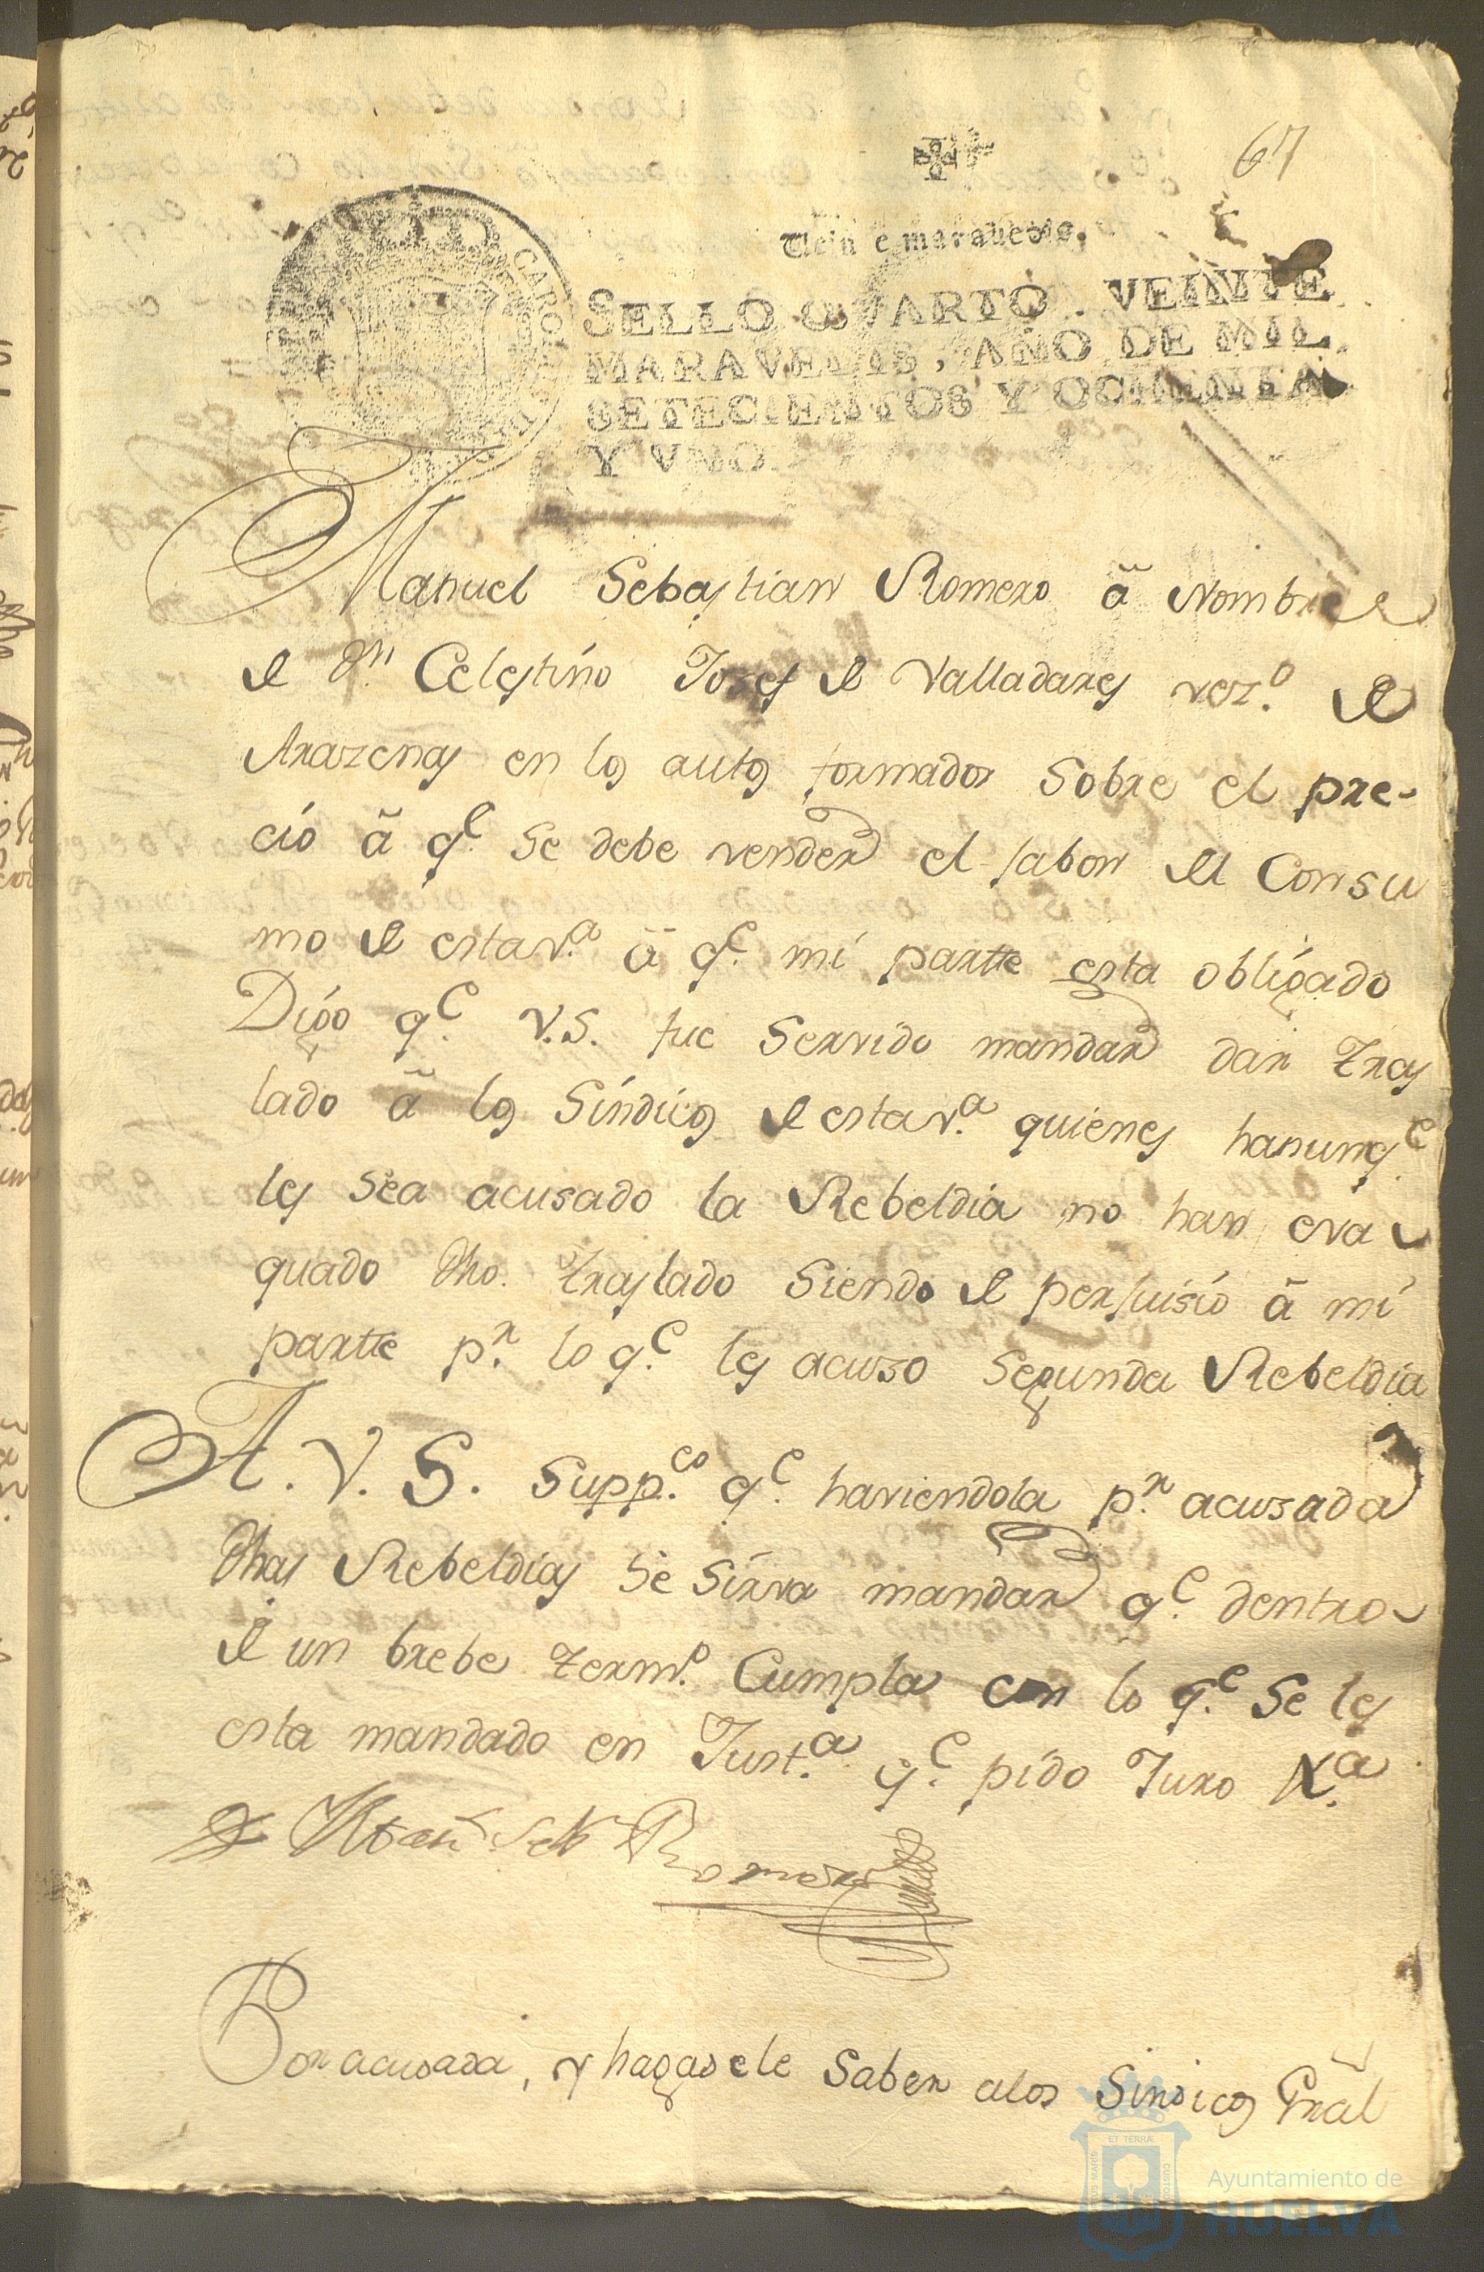 67
Veinte maravedis.
SELLO QVARTO, VEINTE
MARAVEDIS, AÑO DE MIL
SETECIENTOS Y OCHENTA
Y VNO.
Manuel Sebastian Romero â Nombre
de Dn. Celestino Josef de Valladares vez.o de
Arazenas en los autos formados sobre el pre-
cio â q.e se debe vender el jabon del Consu
mo de esta v.a â q.e mi partte esta obligado
Digo q.e V.S. fue Servido mandar dar tras
lado â los Síndicos de esta v.a quienes haunq.e
les sea acusado la Rebeldia no han eva
quado dho. traslado siendo de perjuisio â mi
partte p.r lo q.e les acuso segunda Rebeldia
A. V. S. Supp.co q.e haviendola p.r acusada
dhas Rebeldias se sirva mandar q.e dentro
de un brebe termo. Cumpla con lo q.e se les
esta mandado en Just.a q.e pido Juro N.a
Man Seb Romero
Por acusada, y hagasele saber alos Sindicos Gral
Ayuntamiento de
HUELVA